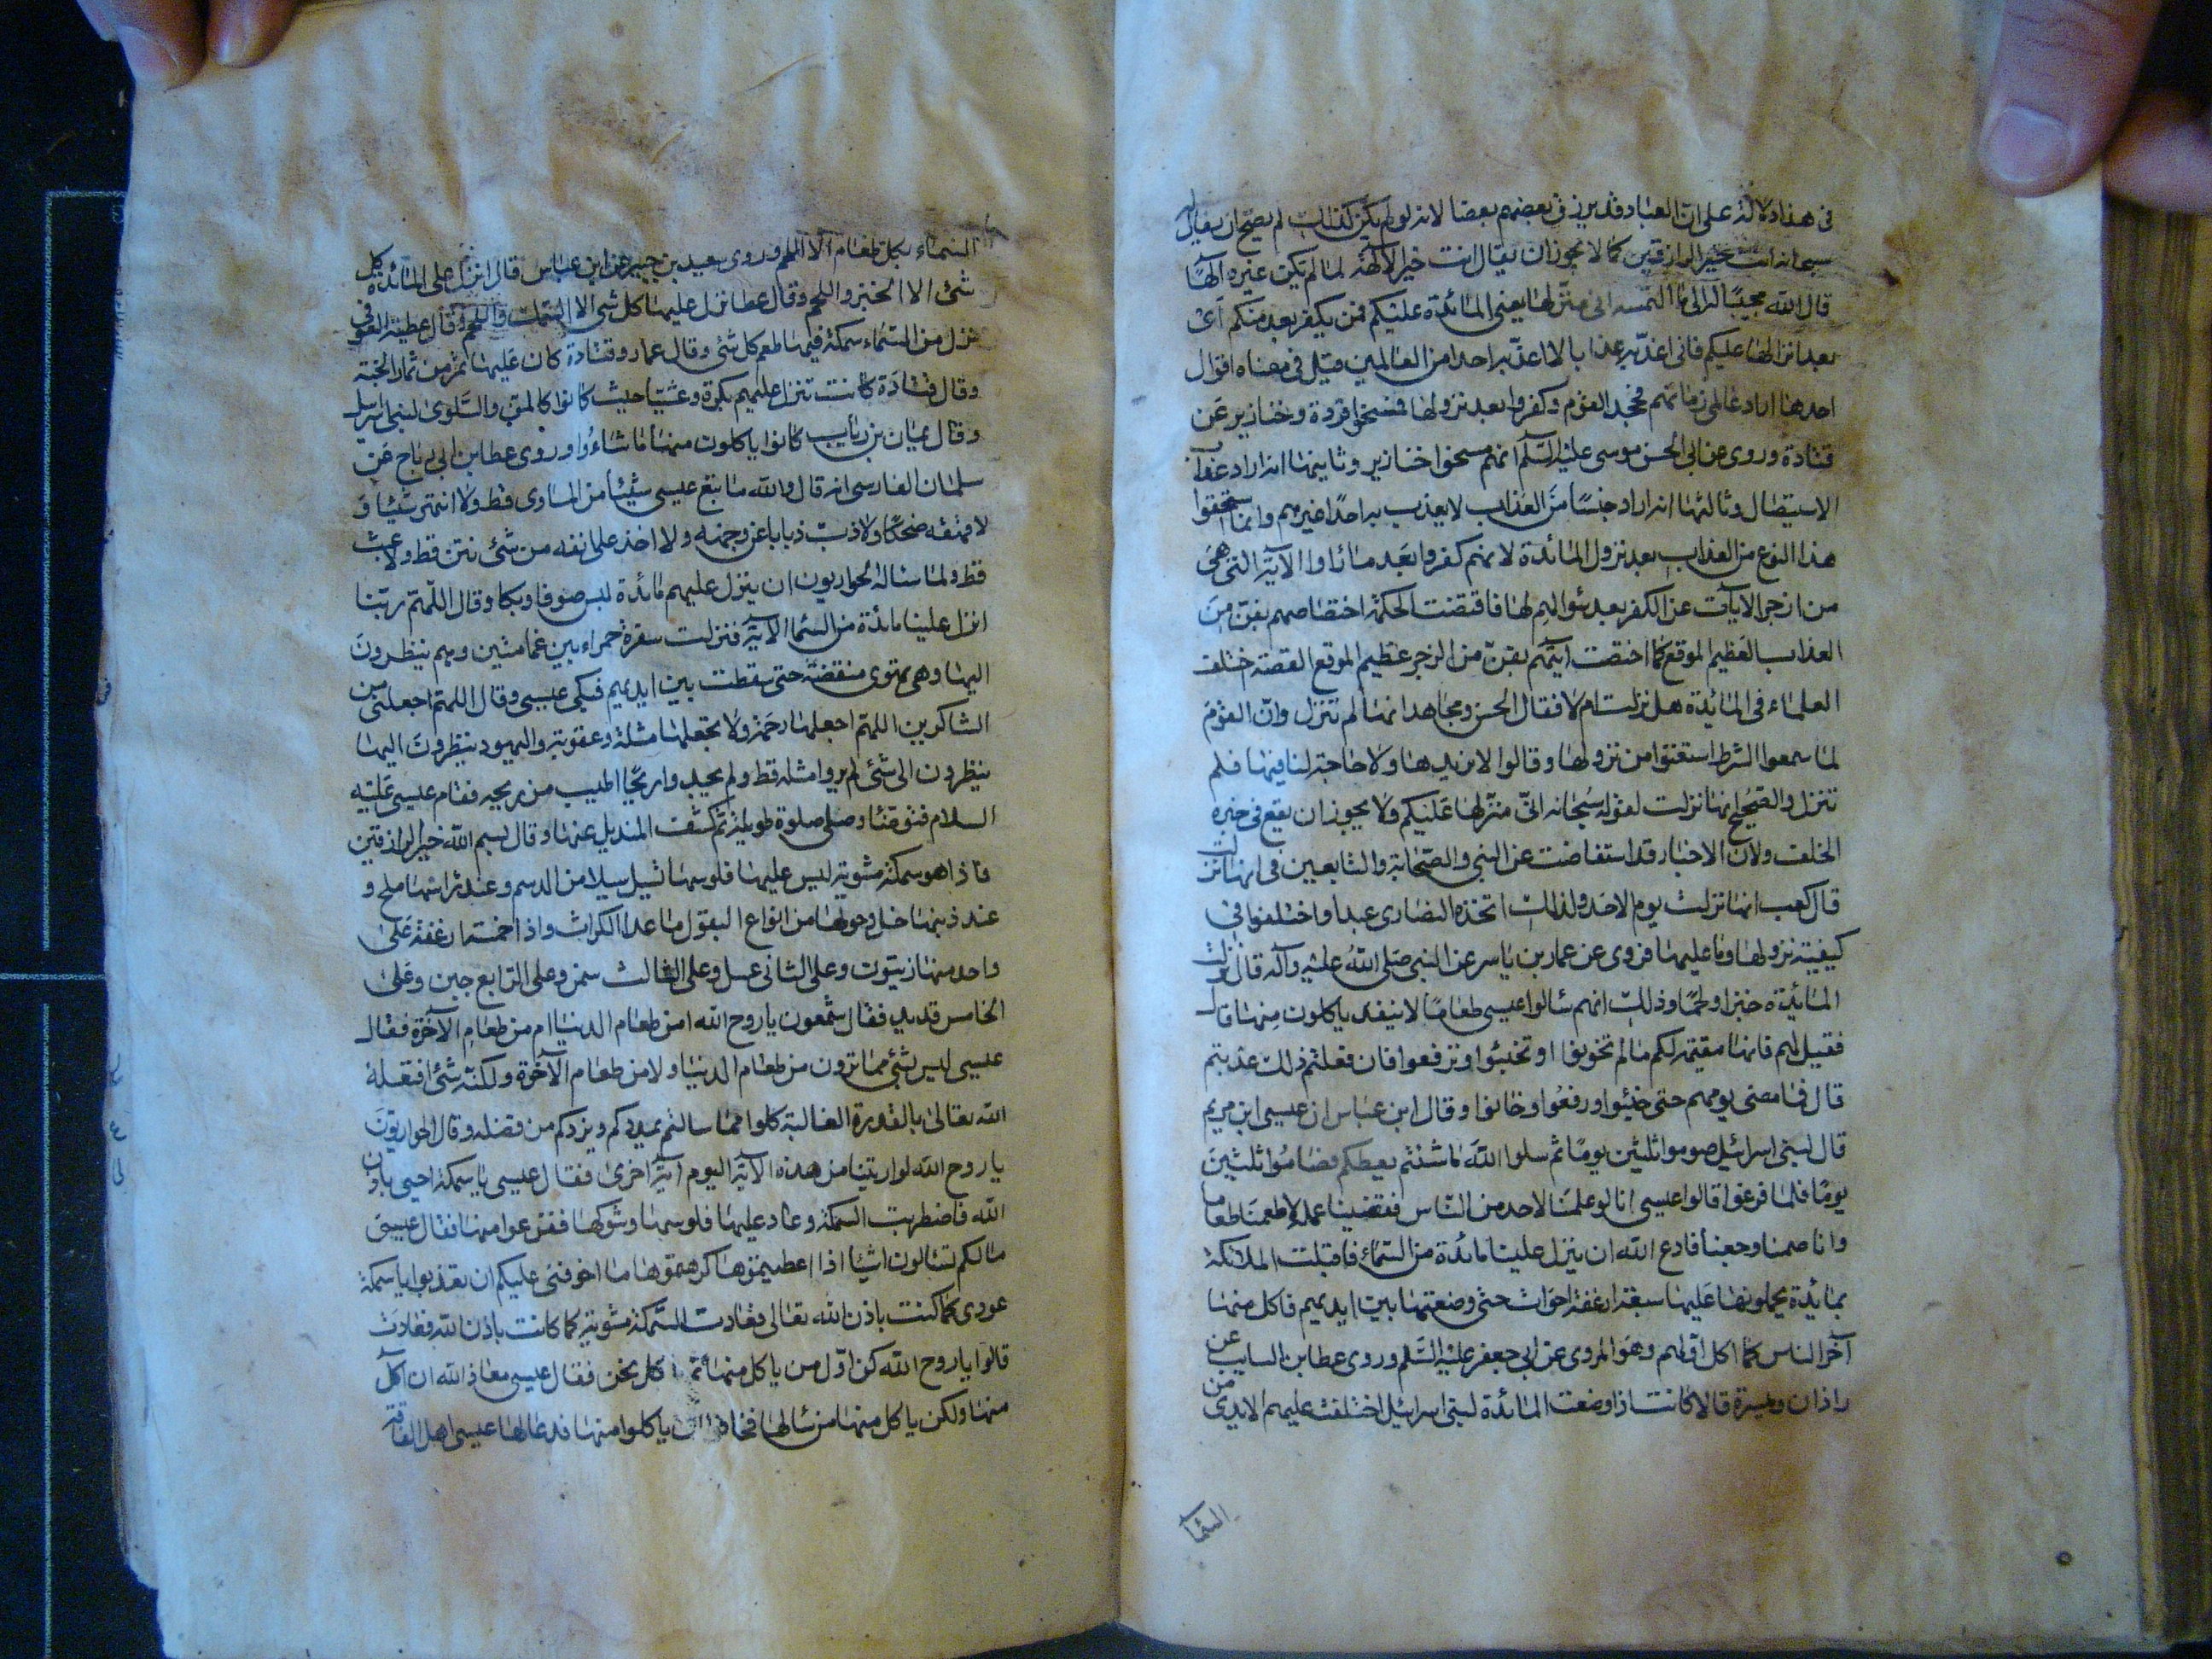 فى هذا دلالة على ان العباد قد يرزق بعضهم بعضا لانه لو لم يكن كذلك لم يصح ان يقال له
سبحانه انت خير الرازقين كما لا يجوز ان يقال انت خير الآلهة لما لم يكن غيره الها
قال الله مجيبا له الى ما التمسه انى منزلها يعنى المائدة عليكم فمن يكفر بعد منكم اى
بعد انزالها عليكم فانى اعذبه عذابا لا اعذبه احدا من العالمين قيل فى معناه اقوال
احدها اراد عالمى زمانهم فجحد القوم وكفروا بعد نزولها فمسخوا قردة وخنازير عن
قتادة وروى عن ابى الحسن موسى عليه السلم انهم مسخوا خنازير وثانيها انه اراد عذاب
الاستيصال وثالثها انه اراد جنسا من العذاب لا يعذب به احدا غيرهم وانما استحقوا
هذا النوع من العذاب بعد نزول المائدة لانهم كفروا بعد ما راوا الآية التى هى
من ازجر الآيات عن الكفر بعد سؤالهم لها فاقتضت الحكمة اختصاصهم بفن من
العذاب العظيم الموقع كما اختصت آيتهم بفن من الزجر عظيم الموقع القصة اختلف
العلماء فى المائدة هل نزلت ام لا فقال الحسن ومجاهد انها لم تنزل وان القوم
لما سمعوا الشرط استعفوا من نزولها وقالوا لا نريدها ولا حاجة لنا فيها فلم
تنزل والصحيح انها نزلت لقوله سبحانه انى منزلها عليكم ولا يجوز ان يقع فى خبره
الخلف ولان الاخبار قد استفاضت عن النبى والصحابة والتابعين فى انها نزلت
قال كعب انها نزلت يوم الاحد ولذلك اتخذه النصارى عيدا واختلفوا فى
كيفية نزولها وما عليها فروى عن عمار بن ياسر عن النبى صلى الله عليه وآله قال نزلت
المائدة خبزا ولحما وذلك انهم سالوا عيسى طعاما لا ينفد ياكلون منها قال
فقيل لهم فانها مقيمة لكم ما لم تخونوا او تخبئوا وترفعوا فان فعلتم ذلك عذبتم
قال فما مضى يومهم حتى خبئوا ورفعوا وخانوا وقال ابن عباس ان عيسى ابن مريم
قال لبنى اسرائيل صوموا ثلثين يوما ثم سلوا الله ما شئتم يعطكم فصاموا ثلثين
يوما فلما فرغوا قالوا عيسى انا لو علمنا لاحد من الناس فقضينا عمله لاطعمنا طعاما
وانا صمنا وجعنا فادع الله ان ينزل علينا مائدة من السماء فاقبلت الملائكة
بمائدة يحملونها عليها سبعة ارغفة احوات حتى وضعتها بين ايديهم فاكل منها
آخر الناس كما اكل اولهم وهو المروى عن ابى جعفر عليه السلم وروى عطا بن السايب عن
زاذان وميسرة قالا كانت اذا وضعت المائدة لبنى اسرائيل اختلفت عليهم الايدى من
السماء
السماء بكل طعام الا اللحم وروى سعيد بن جبير عن ابن عباس قال انزل على المائدة كل
شئ الا الخبز واللحم وقال عطا نزل عليها كل شى الا السمك واللحم وقال عطية العوفى
نزل من السماء سمكة فيها طعم كل شئ وقال عمار وقتادة كان عليها ثمر من ثمار الجنة
وقال قتادة كانت تنزل عليهم بكرة وعشيا حيث كانوا كالمن والسلوى لبنى اسرائيل
وقال يمان بن رئاب كانوا ياكلون منها ما شاءوا وروى عطا بن ابى رباح عن
سلمان الفارسى انه قال والله ما تبع عيسى شيئا من المساوى قط ولا انتهر شيئا و
لا قهقه ضحكا ولا ذب ذبابا عن وجهه ولا اخذ على انفه من شئ نتن قط ولا عبث
قط ولما ساله الحواريون ان ينزل عليهم مائدة لبس صوفا وبكا وقال اللهم ربنا
انزل علينا مائدة من السماء الآية فنزلت سفرة حمراء بين غمامتين وهم ينظرون
اليها وهى تهوى منقضة حتى سقطت بين ايديهم فبكى عيسى وقال اللهم اجعلنى من
الشاكرين اللهم اجعلها رحمة ولا تجعلها مثلة وعقوبة واليهود ينظرون اليها
ينظرون الى شئ لم يروا مثله قط ولم يجدوا ريحا اطيب من ريحه فقام عيسى عليه
السلام فتوضئا وصلى صلوة طويلة ثم كشف المنديل عنها وقال بسم الله خير الرازقين
فاذا هو سمكة مشوية ليس عليها فلوسها تسيل سيلا من الدسم وعند راسها ملح و
عند ذنبها خل وحولها من انواع البقول ما عدا الكراث واذا خمسة ارغفة على
واحد منها زيتون وعلى الثانى عسل وعلى الثالث سمن وعلى الرابع جبن وعلى
الخامس قديد فقال شمعون يا روح الله امن طعام الدنيا ام من طعام الآخرة فقال
عيسى ليس شئ مما ترون من طعام الدنيا ولا من طعام الآخرة ولكنه شئ افتعله
الله تعالى بالقدرة الغالبة كلوا مما سالتم يمددكم ويزدكم من فضله وقال الحواريون
يا روح الله لو اريتنا من هذه الآية اليوم آية اخرى فقال عيسى يا سمكة احيى باذن
الله فاضطربت السمكة وعاد عليها فلوسها وشوكها ففزعوا منها فقال عيسى
ما لكم تسئالون اشياء اذا اعطيتموها كرهتموها ما اخوفنى عليكم ان تعذبوا يا سمكة
عودى كما كنت باذن الله تعالى فعادت السمكة مشوية كما كانت باذن الله فعادت
قالوا يا روح الله كن اول من ياكل منها ثم ناكل نحن فقال عيسى معاذ الله ان آكل
منها ولكن ياكل منها من سالها فخافوا ان ياكلوا منها فدعا لها عيسى اهل الفاقة